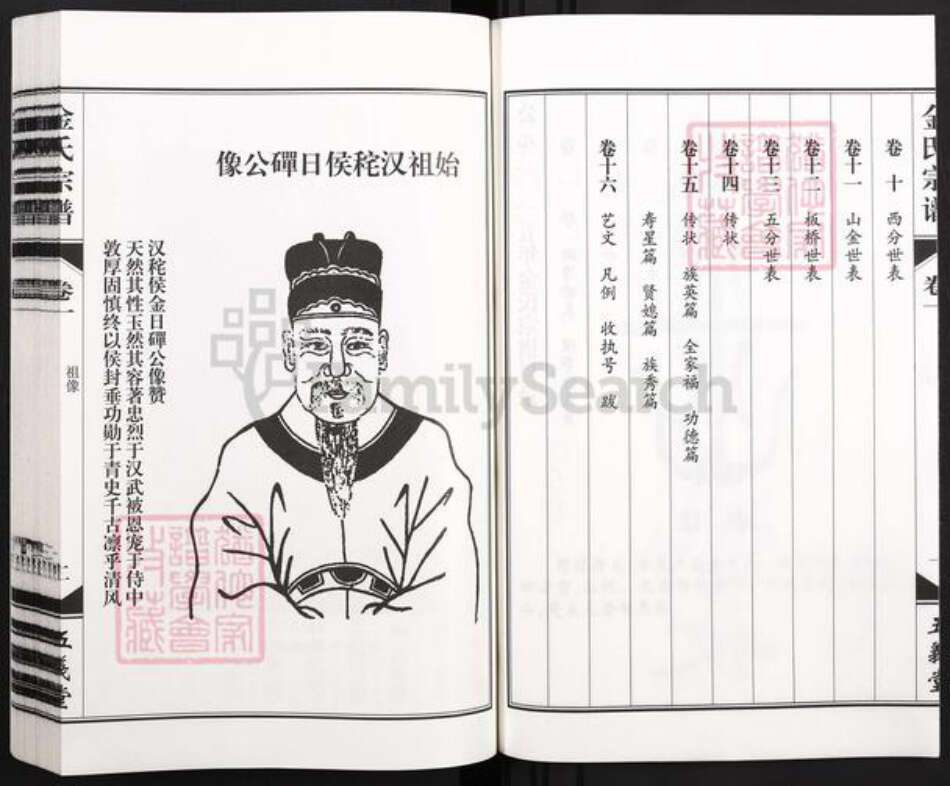 金氏宗谱
卷一
五义堂
卷十 西分世表
卷十一 山金世表
卷十二 板桥世表
卷十三 五分世表
卷十四 传状
卷十五 传状 族英篇 全家福 功德篇
寿星篇 贤媳篇 族秀篇
卷十六 艺文 凡例 收执号 跋
始祖汉秺侯日磾公像
汉秺侯金日磾公像赞
天然其性玉然其容著忠烈于汉武被恩宠于侍中
敦厚固慎终以侯封垂功勋于青史千古凛乎清风
金氏宗谱
卷一
祖像
二
五义堂
FamilySearch